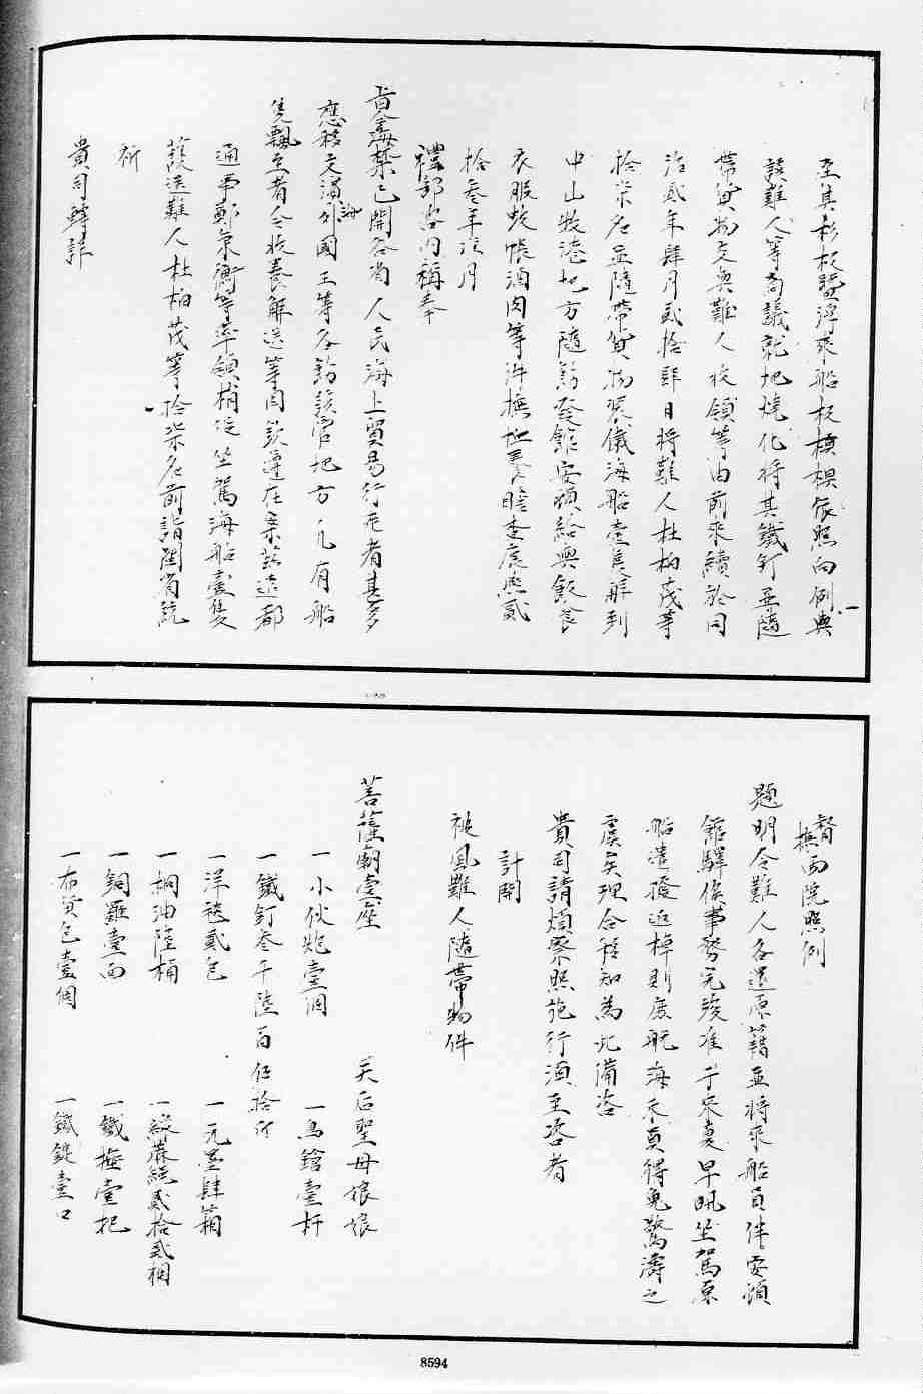 至其杉板暨浮來船板損模依照向例與
該難人等商議就地燒化將其鐵釘並隨
帶貨物交與難人收領等由前來續於同
治貳年肆月貳拾肆日將難人杜柏茂等
拾柒名並隨帶貨物裝儀海船壹隻解到
中山牧港地方隨飭發館安頓給與飲食
衣服蚊帳酒肉等件撫恤養贍查康熙貳
拾叁年玖月
禮部咨內稱奉
旨今海禁已開各省人民海上貿易行走者甚多
應移文濱海外國王等各飭該管地方凡有船
隻飄至者令收養解送等因欽遵在案茲遣都
通事鄭秉衡等率領梢役坐駕海船壹隻
護送難人杜柏茂等拾柒名前詣閩省統
祈
貴司轉詳
督撫兩院照例
題明令難人各還原籍並將來船員伴安頓
館驛俟事務完竣准于來夏早汛坐駕原
船遣發返棹則庶航海末員得免驚濤之
虞矣理合移知為此備咨
貴司請煩察照施行須至咨者
計開
被風難人隨帶物件
菩薩廟壹座
天后聖母娘娘
一小伙炮壹個
一鳥鎗壹杆
一鐵釘叁千陸百伍拾斤
一洋毯貳包
一元墨肆箱
一桐油陸桶
一綜蔴繩貳拾貳梱
一銅羅壹面
一鐵掗壹把
一布貨包壹個
一鐵錠壹口
8594